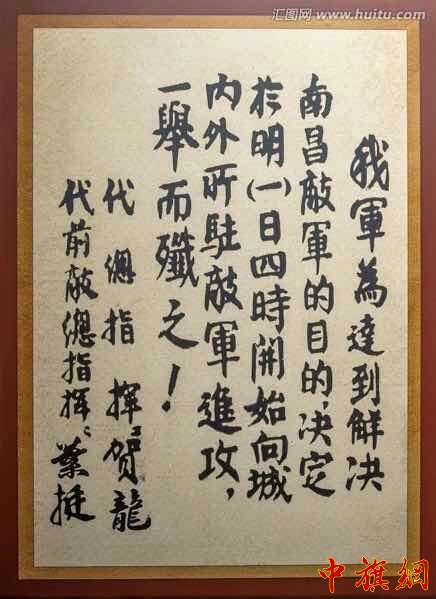 汇图网 www.huitu.com
我軍為達到解决
南昌敵軍的目的,决定
於明(一)日四時開始向城
内外所駐敵軍進攻,
一舉而殲之!
代總指揮:賀龍
代前敵總指揮:葉挺
中旗網